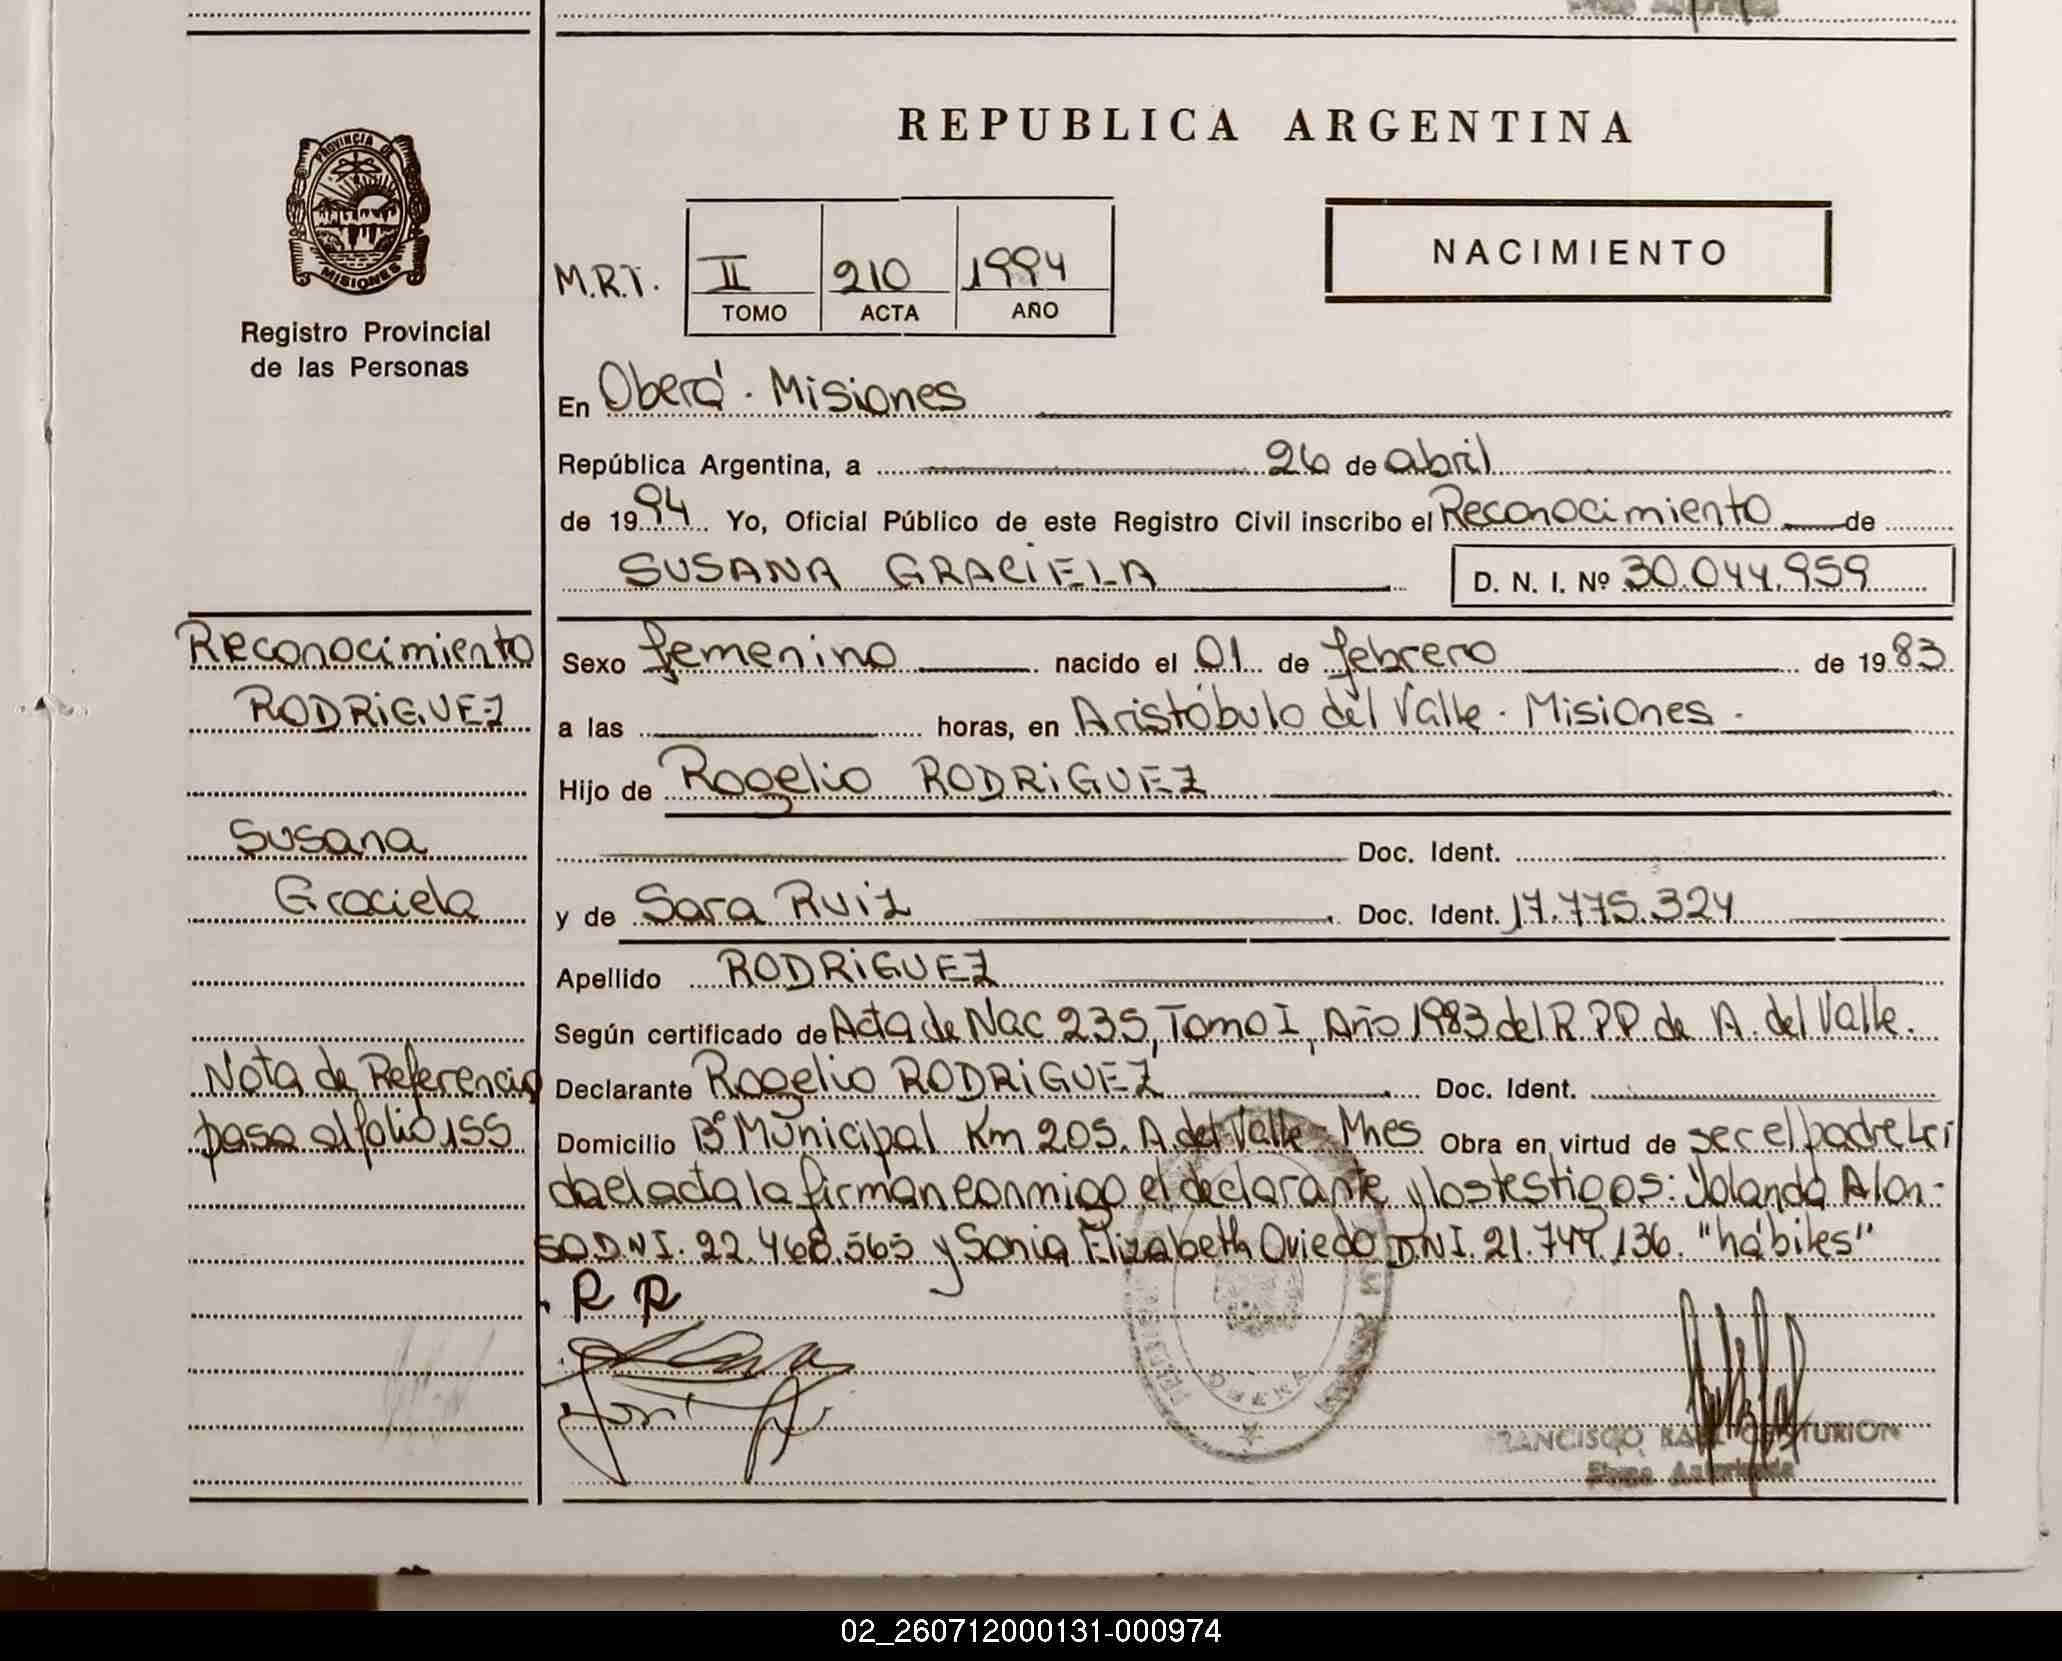 REPUBLICA ARGENTINA
PROVINCIA DE
MISIONES
Registro Provincial
de las Personas
NACIMIENTO
M.R.T. II 210 1994
TOMO ACTA AÑO
En Oberá. Misiones
República Argentina, a 26 de abril
de 1994 Yo, Oficial Público de este Registro Civil inscribo el Reconocimiento de
SUSANA GRACIELA D. N. I. Nº 30.044.959
Reconocimiento
RODRIGUEZ
Susana
Graciela
Nota de Referencia
pasa al folio 155
Sexo femenino nacido el 01 de febrero de 1983
a las horas, en Aristóbulo del Valle. Misiones.
Hijo de Rogelio RODRIGUEZ
Doc. Ident.
y de Sara Ruiz Doc. Ident. 17.775.324
Apellido RODRIGUEZ
Según certificado de Acta de Nac 235, Tomo I, Año 1983 del R.P.P. de A. del Valle.
Declarante Rogelio RODRIGUEZ Doc. Ident.
Domicilio Bº Municipal Km 205. A. del Valle - Mnes Obra en virtud de ser el padre Leí
da el acta la firman conmigo el declarante y los testigos: Yolanda Alon-
so D.N.I. 22.468.565 y Sonia Elizabeth Oviedo DNI. 21.744.136. "hábiles"
R R
OBERA
FRANCISCO CENTURION
Firma Autorizada
02_260712000131-000974